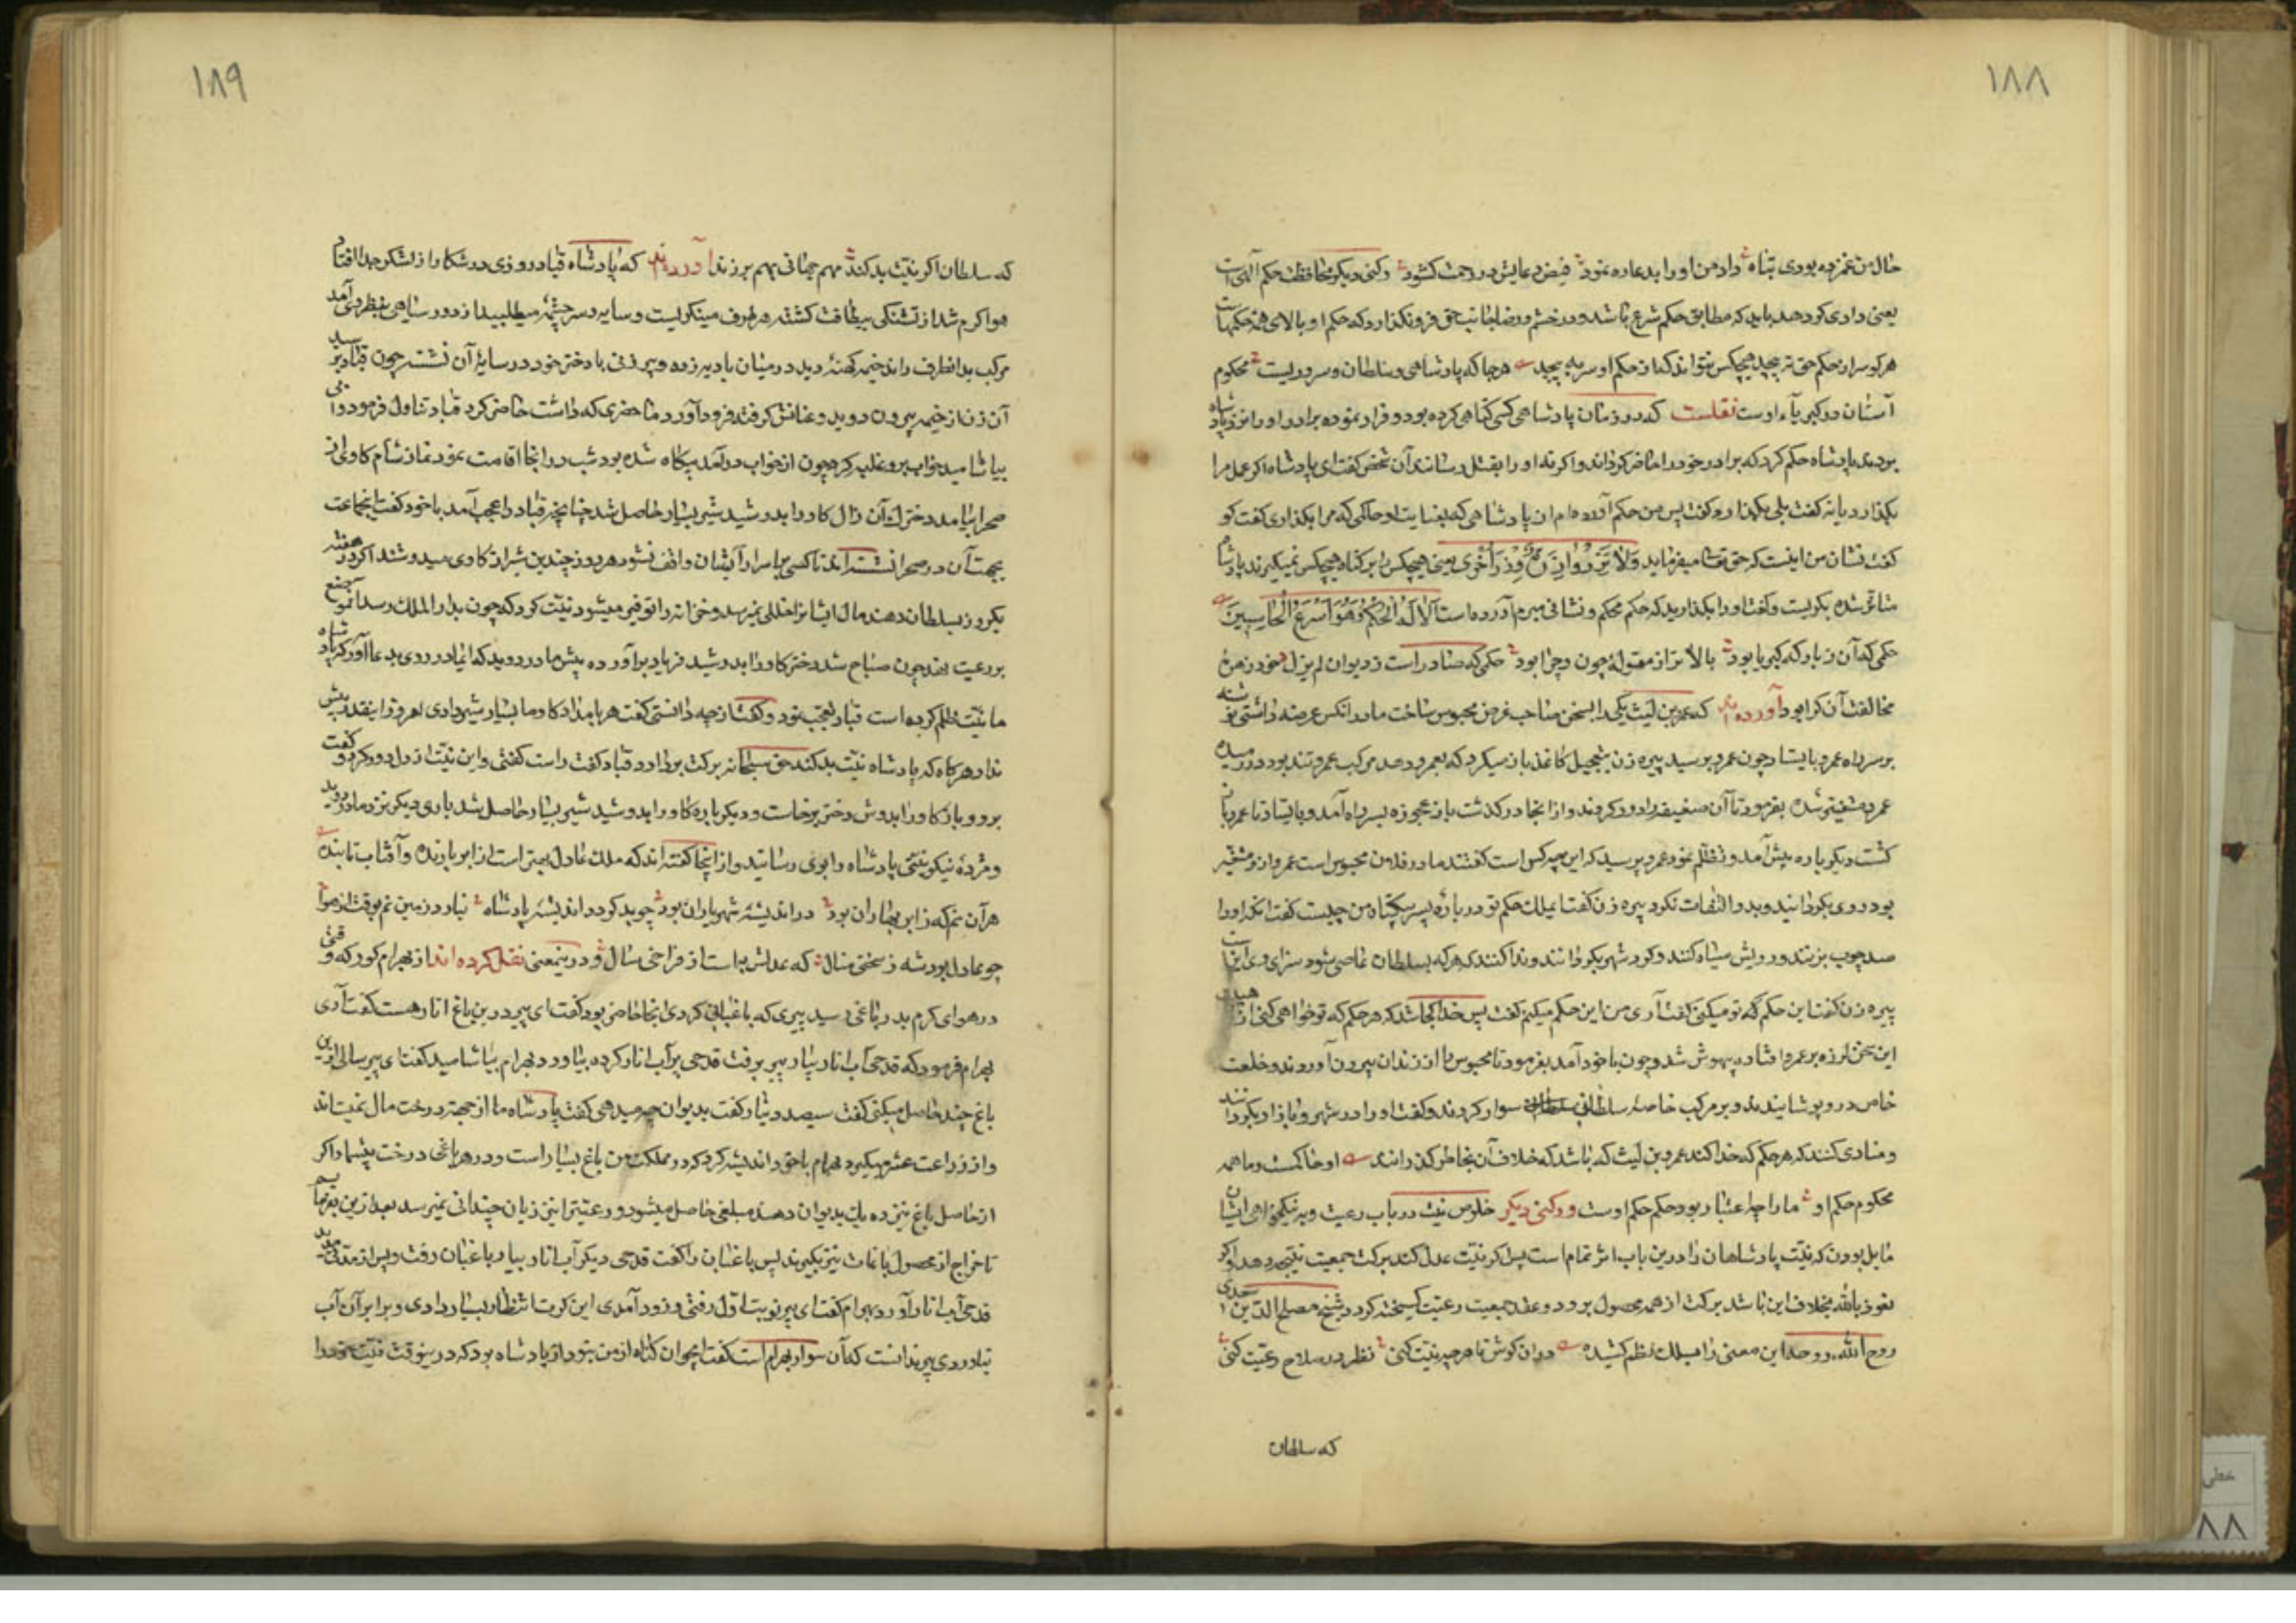 ۱۸۸
حال من غمزده بودی تباه داد من او را بدعا ره نمود فیض دعایش در رحمت کشود رکنی دیگر محافظت حکم الهی است
یعنی دادی کو دهد باید که مطابق حکم شرع باشد و در خشم و رضا جانب حق فرو نگذارد که حکم او بالای همه حکمهاست
هر کو سر از حکم حق نه پیچد هیچکس نتواند که از حکم او سر به پیچد هر جا که پادشاهی و سلطان و سروریست محکوم
آستان در کبریاء اوست نقلست که در زمان پادشاهی کسی گناهی کرده بود و فرار نموده برادر او را نزد پادشاه
بردند پادشاه حکم کرد که برادر خود را حاضر گرداند و اگر نه او را بقتل رسانند آن شخص گفت ای پادشاه اگر عمل مرا
بگذارد یا نه گفت بلی بگذارد گفت پس من حکم آورده ام از پادشاهی که بعنایت او حاکمی که مرا بگذاری گفت کو
گفت نشان من اینست که حق تعالی میفرماید وَلَا تَزِرُ وَازِرَةٌ وِزْرَ أُخْرَى یعنی هیچکس را بر گناه هیچکس نمیگیرند پادشاه
متاثر شده بگریست و گفت او را بگذارید که حکم محکم و نشانی مبرم آورده است أَلَا لَهُ الْحُكْمُ وَهُوَ أَسْرَعُ الْحَاسِبِينَ
حکمی که آن ز بارگه کبریا بود بالاتر از مقولهٔ چون و چرا بود حکمی که صادر است ز دیوان لم یزل خود زهره
مخالفت آن کرا بود آورده اند که عمرو بن لیث یکی را بسخن صاحب غرض محبوس ساخت مادر آنکس عرضه داشتی نوشته
بر سر راه عمرو بایستاد چون عمرو برسید پیره زن بتعجیل کاغذ باز میکرد که بعمرو دهد مرکب عمرو تند بود در رمیده
عمرو متغیر شده بفرمود تا آن ضعیفه را دور کردند و از انجا درگذشت باز عجوزه بسر راه آمد و بایستاد تا عمرو باز
گشت دیگر باره پیش آمد و تظلم نمود عمرو پرسید که این چه کس است گفتند مادر فلان محبوس است عمرو ازو متغیر
بود روی بگردانید و بدو التفات نکرد پیره زن گفت ایملک حکم تو در بارهٔ پسر بیگناه من چیست گفت انکه او را
صد چوب بزنند و رویش سیاه کنند و گرد شهر بگردانند و ندا کنند که هر که بسلطان عاصی شود سزای وی اینست
پیره زن گفت این حکم که تو میکنی گفت آری من این حکم میکنم گفت پس خدا کجا باشد که هر حکم که تو خواهی کنی از هیبت
این سخن لرزه بر عمرو افتاده بیهوش شد و چون باخود آمد بفرمود تا محبوس را از زندان بیرون آوردند و خلعت
خاص در و پوشانیدند و بر مرکب خاصهٔ سلطانی سوار کردند و گفت او را در شهر و بازار بگردانند
و منادی کنند که هر حکم که خدا کند عمرو بن لیث که باشد که خلاف آن بخاطر گذراند او حاکمست و ما همه
محکوم حکم او ما را چه اعتبار بود حکم حکم اوست و رکنی دیگر خلوص نیت در باب رعیت و به نیکخواهی ایشان
مایل بودن که نیّت پادشاهان را درین باب اثر تمام است پس اگر نیّت عدل کند برکت جمعیت نتیجه دهد و اگر
نعوذ بالله بخلاف این باشد برکت از همه محصول برود و عقد جمعیت رعیّت گسیخته گردد شیخ مصلح الدین سعدی
روح الله روحه این معنی را بسلک نظم کشیده در ان کوش تا هر چه نیّت کنی نظر در صلاح رعیّت کنی
که سلطان
۱۸۹
که سلطان اگر نیّت بد کند مهم جهانی بهم بر زند آورده اند که پادشاه قباد روزی در شکار از لشکر جدا افتاد
هوا گرم شد از تشنگی بیطاقت گشته هر طرف مینگریست و سایه و سرچشمه میطلبید از دور سیاهی بنظر وی آمد
مرکب بدانطرف راند خیمهٔ کهنه دید در میان بادیه زده و پیر زنی با دختر خود در سایهٔ آن نشسته چون قباد برسید
آن زن از خیمه بیرون دوید و عنانش گرفته فرود آورد ما حضری که داشت حاضر کرد قباد تناول فرمود و آبی
بیاشامید خواب برو غلبه کرد چون از خواب درآمد بیگاه شده بود شب در انجا اقامت نمود نماز شام گاوی از
صحرا بیامد دخترک آن زال گاو را بدوشید شیر بسیار حاصل شد چنانچه قباد را عجب آمد باخود گفت اینجماعت
بجهت آن در صحرا نشسته اند تا کسی بر اسرار ایشان واقف نشود هر روز چندین شیر از گاوی میدوشند اگر در هفته
یکروز بسلطان دهند مال ایشانرا خللی نمیرسد و خزانه را توفیر میشود نیّت کرد که چون بدار الملک رسد آن وضع
بر رعیت نهد چون صباح شد دختر گاو را بدوشید فریاد برآورده پیش مادر دوید که ای مادر روی بدعا آور که پادشاه
ما نیّت ظلم کرده است قباد تعجب نمود و گفت از چه دانستی گفت هر بامداد گاو ما بسیار شیر دادی امروز اینقدر بیش
نداد هر گاه که پادشاه نیّت بد کند حق سبحانه برکت بردارد قباد گفت راست گفتی و این نیّت از دل دور کرد و گفت
برو و باز گاو را بدوش دختر برخاست و دیگر باره گاو را بدوشید شیر بسیار حاصل شد باری دیگر نزد مادر دوید
و مژدهٔ نیکو نیّتی پادشاه را بوی رسانید و از اینجا گفته اند که ملک عادل بهتر است از ابر بارنده و آفتاب تابنده
هر آن نم که ز ابر بهاران بود در اندیشهٔ شهریاران بود چو بد گردد اندیشهٔ پادشاه نیارد زمین نم بوقت از هوا
چو عادل بود شه ز سختی منال که عدلش به است از فراخی سال و در ینمعنی نقل کرده اند از بهرام گور که وقتی
در هوای گرم بدر باغی رسید پیری که باغبانی کردی انجا حاضر بود گفت ای پیر درین باغ انار هست گفت آری
بهرام فرمود که قدحی آب انار بیار پیر برفت قدحی پر آب انار کرده بیاورد بهرام بیاشامید گفت ای پیر سالی ازین
باغ چند حاصل میکنی گفت سیصد دینار گفت بدیوان چه میدهی گفت پادشاه ما از جهة درخت مال نمیستاند
و از زراعت عشر میگیرد بهرام باخود اندیشه کرد که در مملکت من باغ بسیار است و در هر باغی درخت بیشمار اگر
از حاصل باغ نیز ده یک بدیوان دهند مبلغی حاصل میشود و رعیّترا نیز زیان چندانی نمیرسد بعد ازین بفرمایم
تا خراج از محصول باغات نیز بگیرند پس باغبان را گفت قدحی دیگر آب انار بیار باغبان رفت و پس از مدتی مدید
قدحی آب انار آورد بهرام گفت ای پیر نوبت اول رفتی و زود آمدی این کرت انتظار بسیار دادی و برابر آن آب
نیاوردی پیر ندانست که آن سوار بهرام است گفت ایجوان گناه از من نبود از پادشاه بود که در ینوقت نیّت خود را